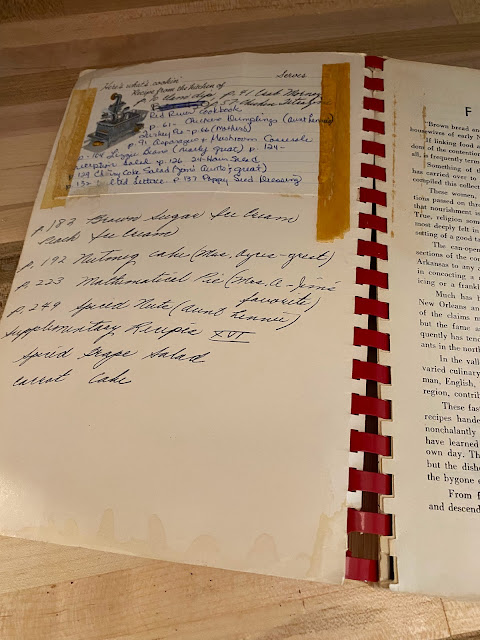 Here's what's cookin' Serves
Recipe from the kitchen of
p. 91
Red River Cookbook
p. 61- Chicken Dumplings (Aunt Fannie)
Turkey Pie - p. 66 (Mothers)
p. 91 Asparagus + Mushroom Casserole
p. 104 Lizzie Beans (really great) p. 124-
Salad p. 126 24-Hour Salad
p. 129 Cherry Coke Salad (Jim's Aunt's great)
p. 132 Wilted Lettuce p. 137 Poppy Seed Dressing
p. 182 Brown Sugar Ice Cream
Peach Ice Cream
p. 192 Nutmeg Cake (Mrs. Ayres-great)
p. 223 Pie (Mrs. A-Jim's
favorite)
p. 249 Spiced Nuts (Aunt Fannie)
Supplementary Recipes XVI
Spiced Grape Salad
carrot cake
F
"Brown bread and
housewives of early N
If linking food a
dons of the contention
all, is frequently term
Something of th
has carried over to
compiled this collect
These women,
tions passed on throu
that nourishment s
True, religion somet
most deeply felt in
setting of a good ta
The can-open
sections of the co
Arkansas to any
in concocting a
icing or a frankl
Much has b
New Orleans an
of the claims m
but the fame a
quently has ten
ants in the north
In the valle
varied culinary
man, English,
region, contrib
These fast
recipes hande
nonchalantly
have learned
own day. Th
but the dishe
the bygone e
From f
and descend